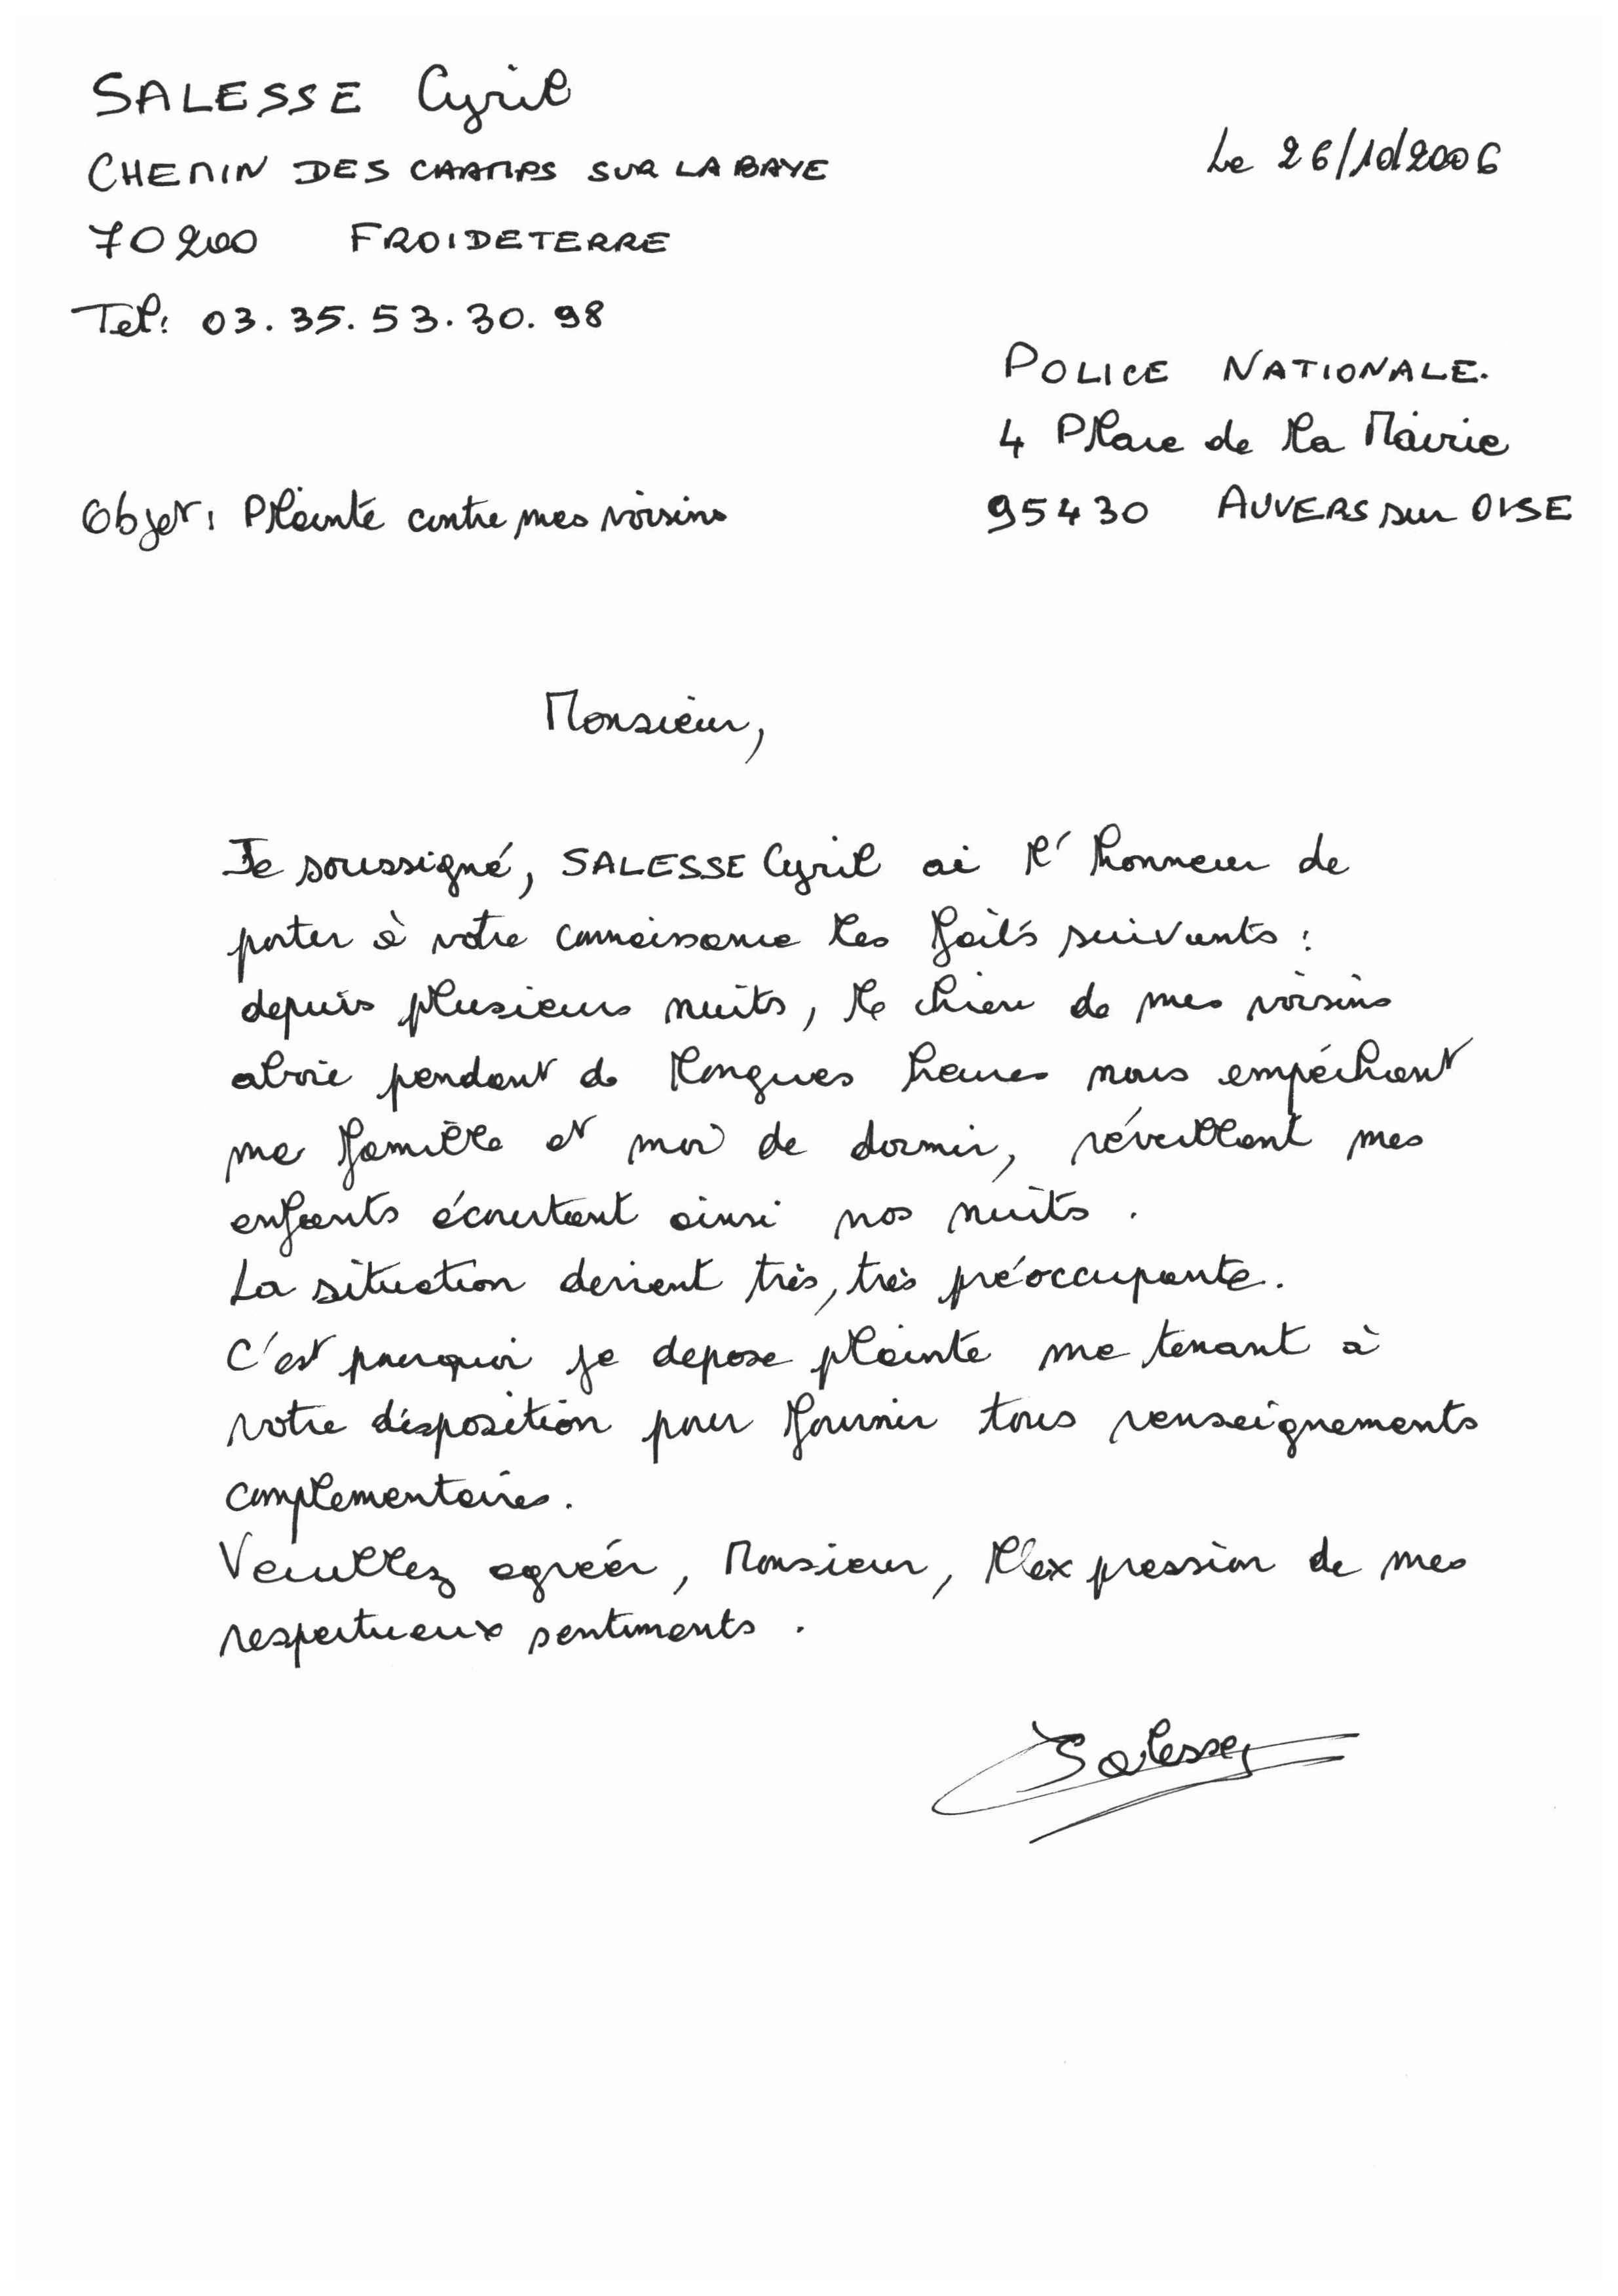 SALESSE Cyril
CHEMIN DES CHAMPS SUR LA BAYE
Le 26/10/2006
70200 FROIDETERRE
Tel: 03.35.53.30.98
POLICE NATIONALE.
4 Place de la Mairie
Objet: Plainte contre mes voisins
95430 AUVERS sur OISE
Monsieur,
Je soussigné, SALESSE Cyril ai l'honneur de
porter à votre connaissance les faits suivants :
depuis plusieurs nuits, le chien de mes voisins
aboie pendant de longues heures nous empêchant
ma famille et moi de dormir, réveillant mes
enfants écourtant ainsi nos nuits.
La situation devient très, très préoccupante.
C'est pourquoi je depose plainte me tenant à
votre disposition pour fournir tous renseignements
complementaires.
Veuillez agréer, Monsieur, l'expression de mes
respectueux sentiments.
Salesse